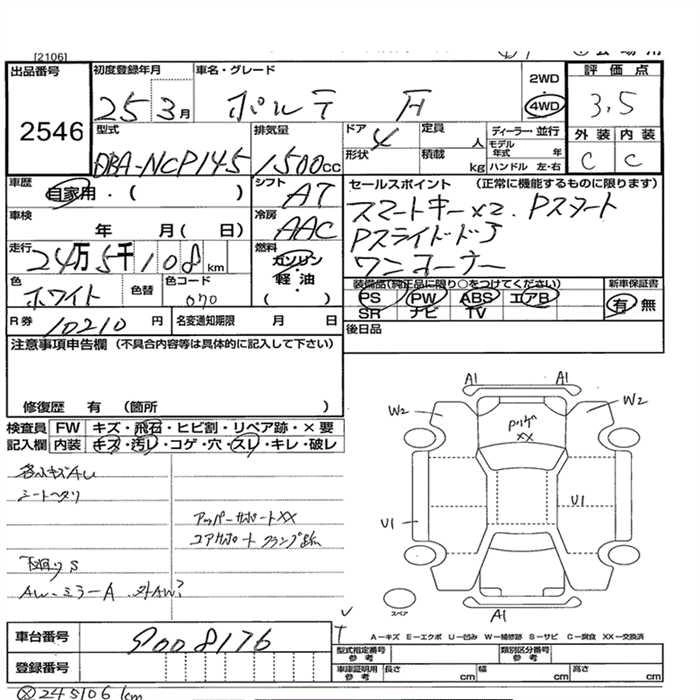 [2106]
出品番号
2546
初度登録年月
25 3月
車名・グレード
ポルテ F
2WD
4WD
評価点
3.5
外装 内装
C C
型式
DBA-NCP145
排気量
1500cc
ドア
4
定員
人
ディーラー・並行
モデル年式 年
形状
積載
kg
ハンドル 左・右
車歴
自家用・( )
シフト
AT
セールスポイント (正常に機能するものに限ります)
スマートキー×2. Pスタート
Pスライドドア
ワンオーナー
車検
年 月( 日)
冷房
AAC
走行
24万5千108km
燃料
ガソリン・軽油
( )
色
ホワイト
色替
色コード
070
装備品(純正品に限り○をつけてください)
PS PW ABS エアB
SR ナビ TV
新車保証書
有 無
R券
10210円
名変通知期限 月 日
後日品
注意事項申告欄 (不具合内容等は具体的に記入して下さい)
修復歴 有 (箇所 )
検査員記入欄
FW キズ・飛石・ヒビ割・リペア跡・×要
内装 キズ・汚レ・コゲ・穴・スレ・キレ・破レ
各小キズAU
シートヘタリ
アッパーサポートXX
コアサポート クランプ跡
下廻りS
AW、ミラーA. 外AW?
A1 A1
W2 W2
XX
U1 U1
A1
スペア
A−キズ E−エクボ U−凹み W−補修跡 S−サビ C−腐食 XX−交換済
車台番号
9008176
登録番号
型式指定番号 参考
類別区分番号 参考
車庫証明用 参考
長さ cm
幅 cm
高さ cm
245106km